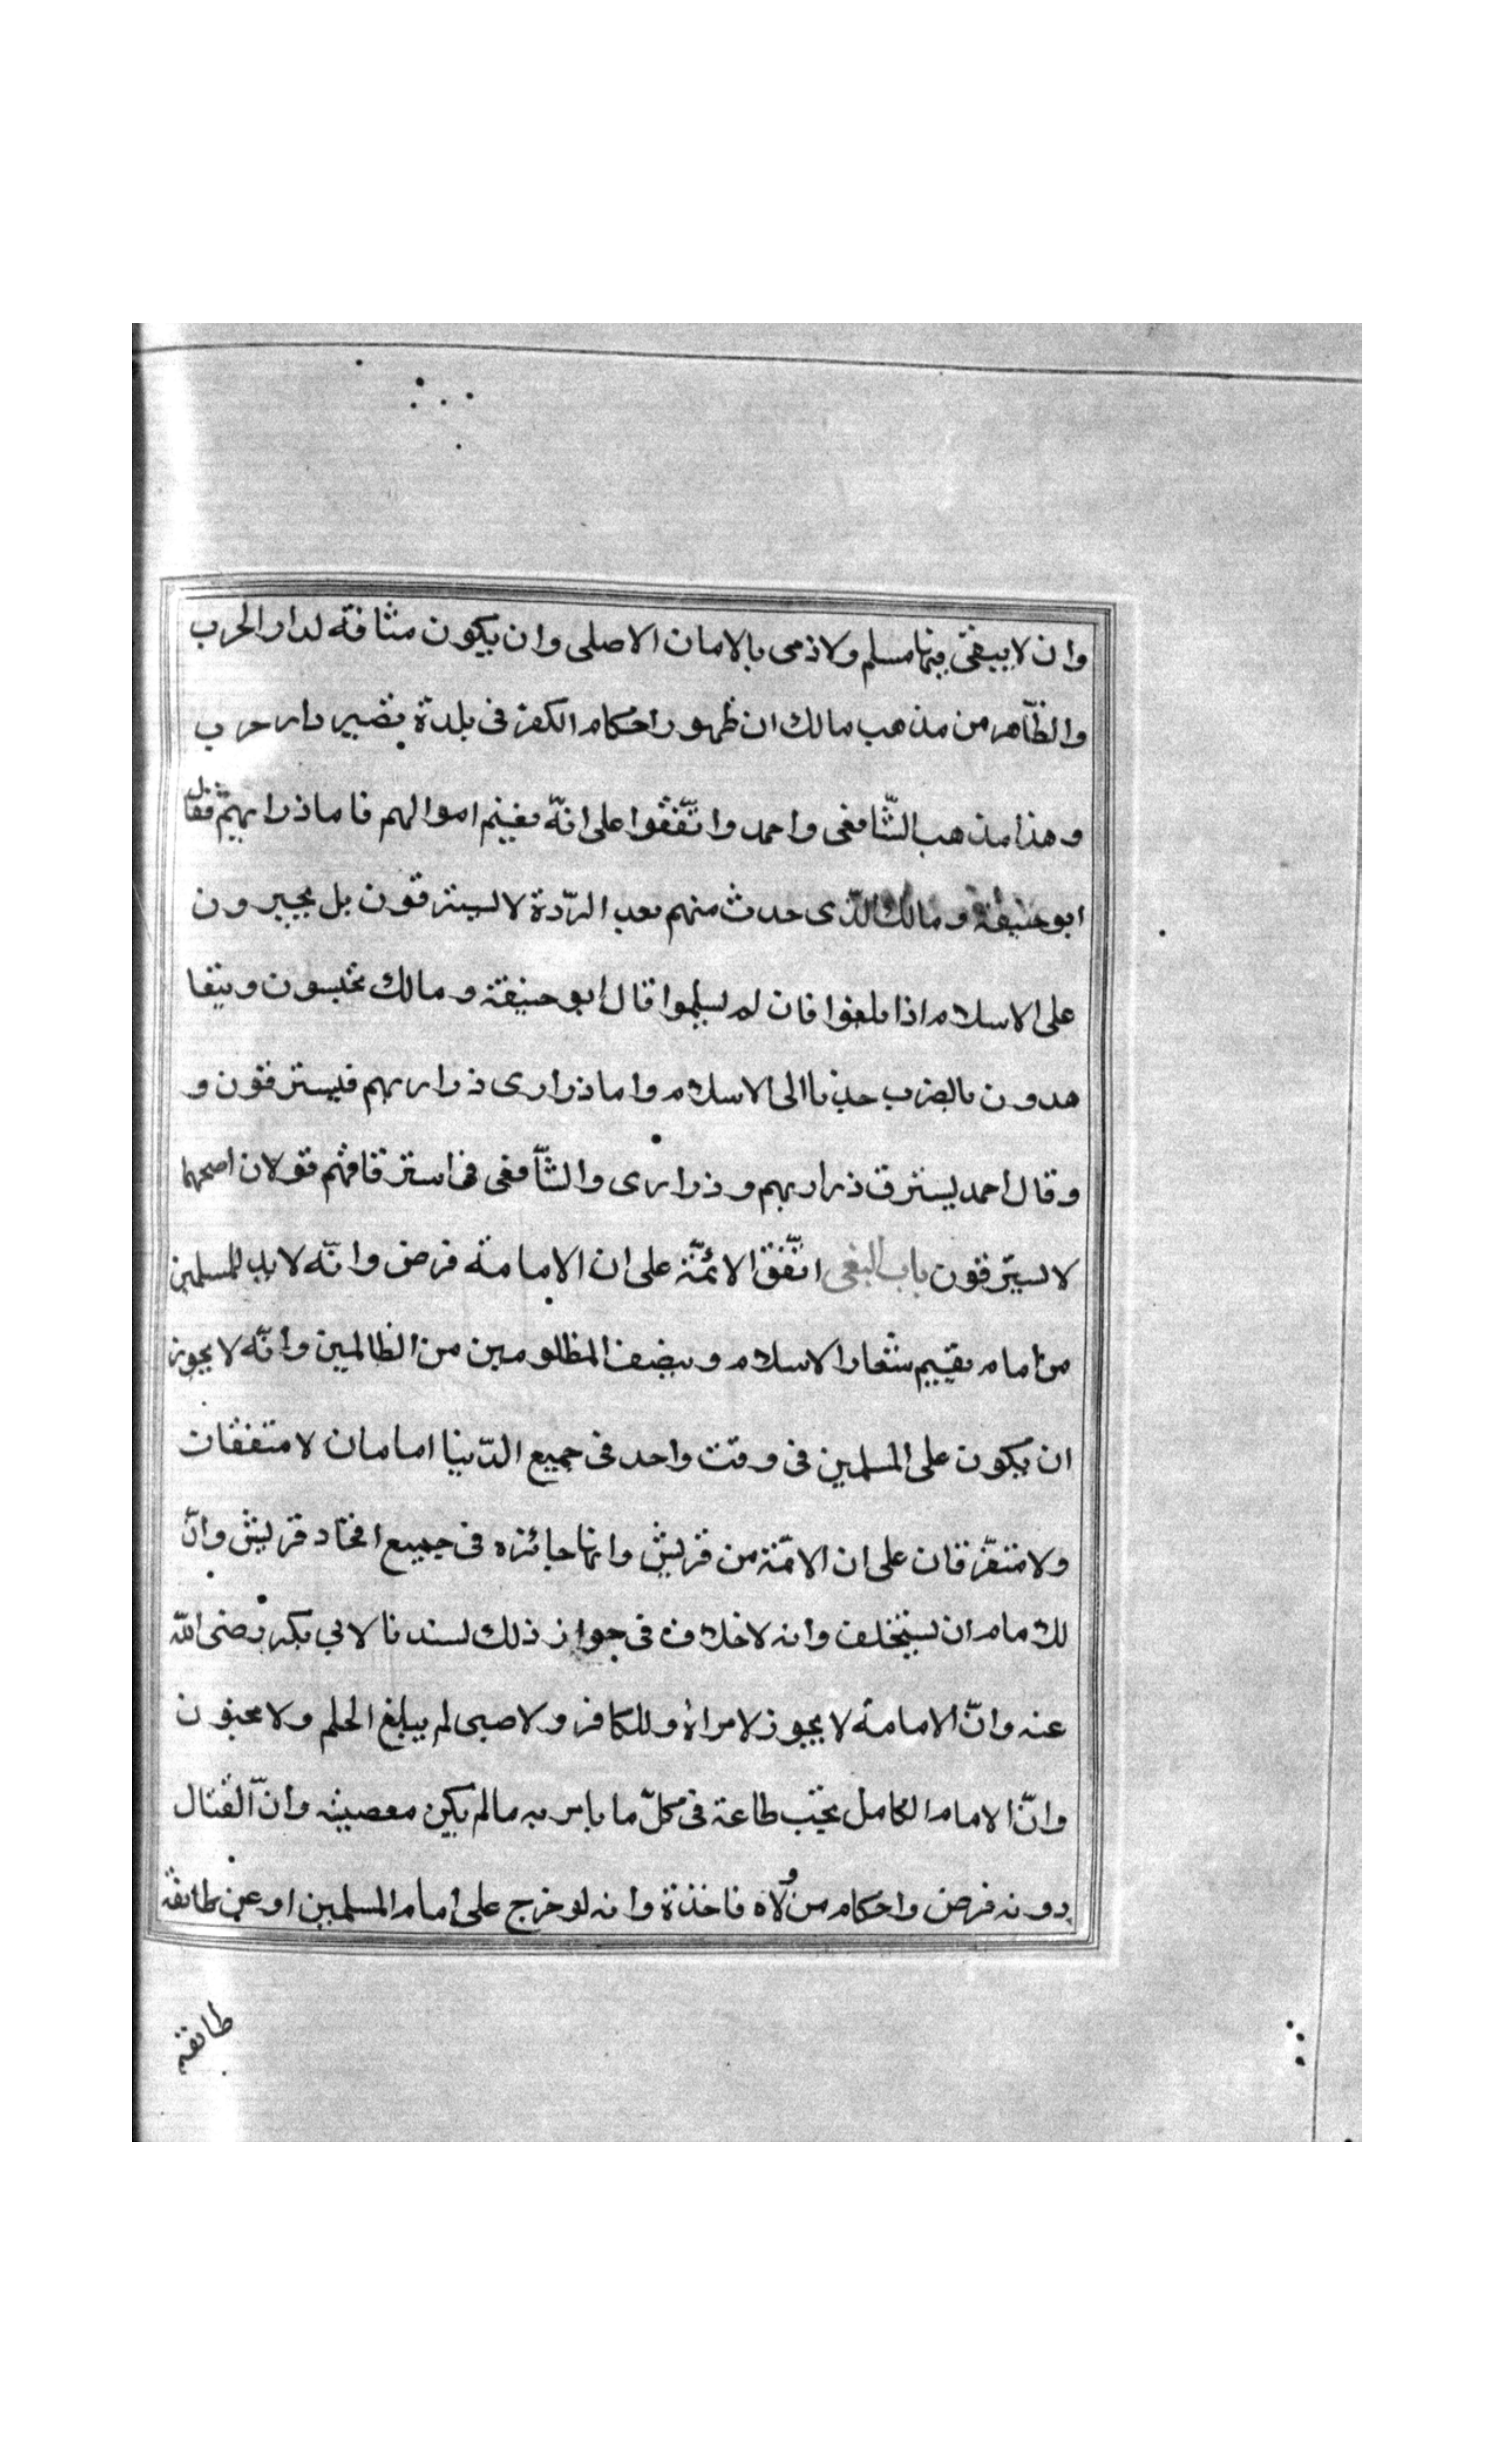 وان لا يبقى فيها مسلم ولا ذمى بالامان الاصلى وان يكون متاقة لدار الحرب
والظّاهر من مذهب مالك ان ظهور احكام الكفر فى بلدة يصير دار حرب
وهذا مذهب الشّافعى واحمد واتّفقوا على انّه يغينم اموالهم فاما ذراريهم فقال
ابو حنيفة ومالك الّذى حدث منهم بعد الرّدة لا يسترقون بل يجبرون
على الاسلام اذا بلغوا فان لم يسلموا قال ابو حنيفة ومالك يحبسون ويتعا
هدون بالضرب جذبا الى الاسلام واما ذرارى ذراريهم فيسترقون و
وقال احمد يسترق ذراريهم وذرارى والشّافعى فى استرقاقهم قولان اصحهما
لا يسترقون باب البغى اتّفق الائمّة على ان الامامة فرض وانّه لا بد للمسلمين
من امام يقيم شعار الاسلام وينصف المظلومين من الظالمين وانّه لا يجوز
ان يكون على المسلمين فى وقت واحد فى جميع الدّنيا امامان لا متفقان
ولا متفرّقان على ان الائمّة من قريش وانها جائزه فى جميع افخاد قريش وانّ
للامام ان يستخلف وانه لا خلاف فى جواز ذلك لسندنا لابي بكر رضى اللّه
عنه وانّ الامامة لا يجوز لامراة وللكافر ولا صبى لم يبلغ الحلم ولا مجنون
وانّ الامام الكامل تجب طاعة فى كلّ ما يامر به مالم يكن معصيته وانّ القتال
دونه فرض واحكام من ولّاه فاخذة وانه لو خرج على امام المسلمين او عن طائفة
طائفة